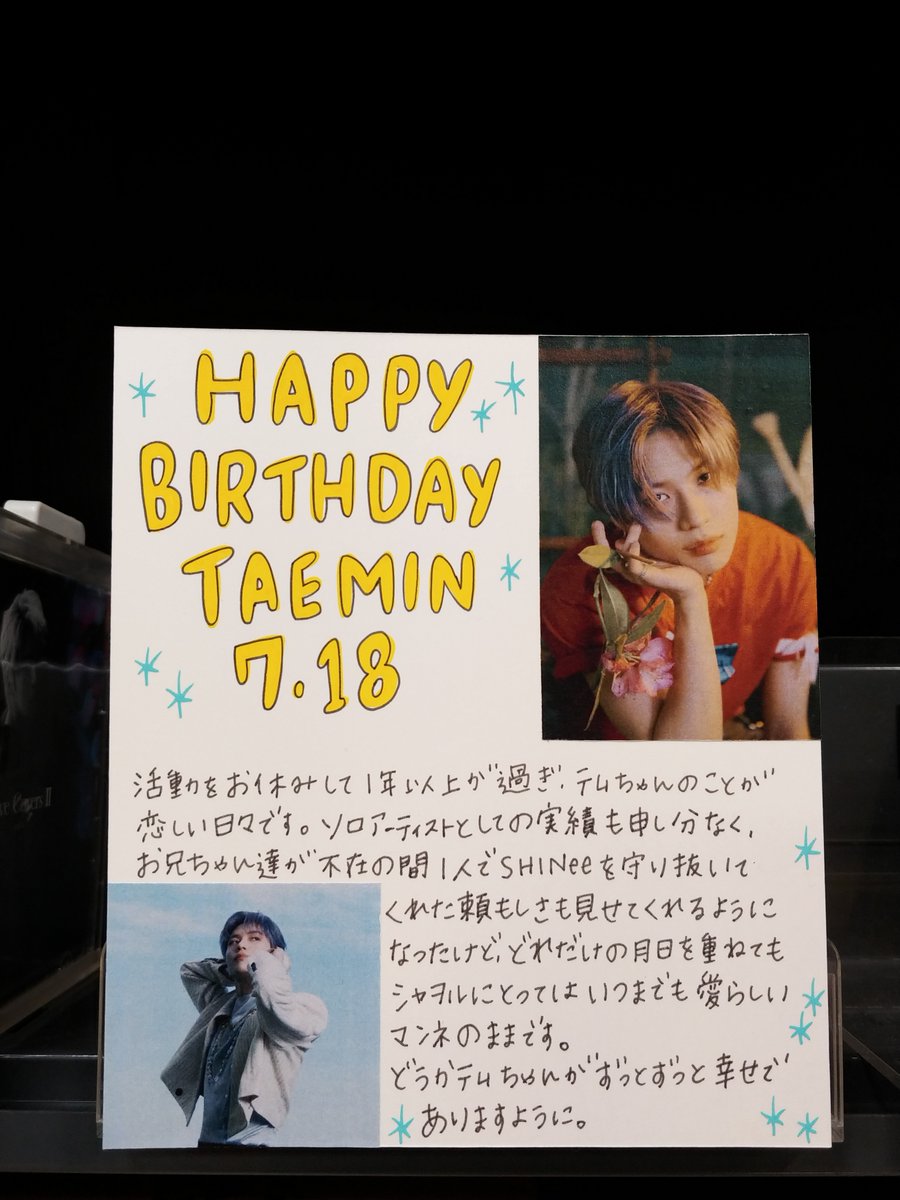 HAPPY
BIRTHDAY
TAEMIN
7.18
活動をお休みして1年以上が過ぎ、テムちゃんのことが
恋しい日々です。ソロアーティストとしての実績も申し分なく、
お兄ちゃん達が不在の間1人でSHINeeを守り抜いて
くれた頼もしさも見せてくれるように
なったけど、どれだけの月日を重ねても
シャヲルにとってはいつまでも愛らしい
マンネのままです。
どうかテムちゃんがずっとずっと幸せで
ありますように。